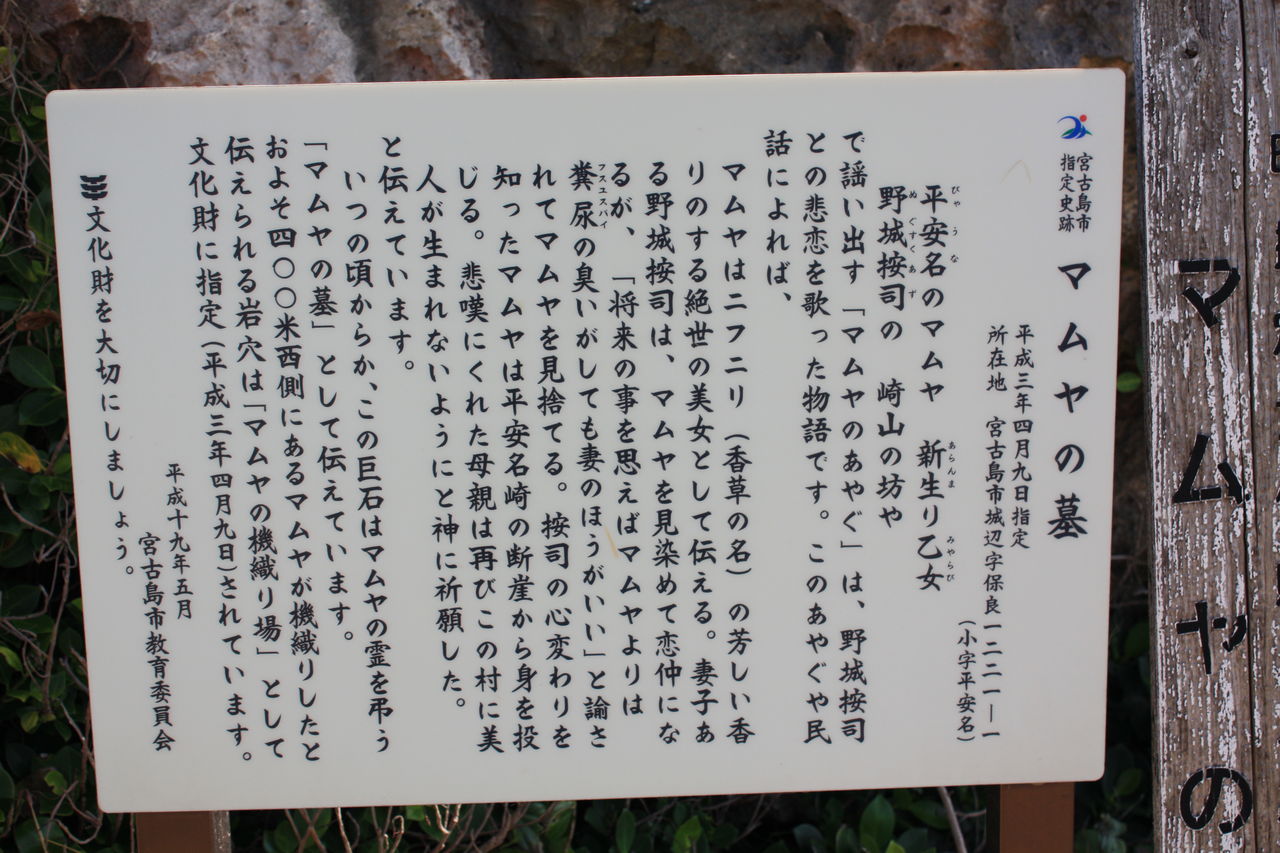 宮古島市
指定史跡
マムヤの墓
平成三年四月九日指定
所在地　宮古島市城辺字保良一二二一―一
（小字平安名）
平安名のマムヤ　新生り乙女
びやうな　あらんま　みやらび
野城按司の　崎山の坊や
ぬぐすくあず
で謡い出す「マムヤのあやぐ」は、野城按司
との悲恋を歌った物語です。このあやぐや民
話によれば、
マムヤはニフニリ（香草の名）の芳しい香
りのする絶世の美女として伝える。妻子あ
る野城按司は、マムヤを見染めて恋仲にな
るが、「将来の事を思えばマムヤよりは
糞尿の臭いがしても妻のほうがいい」と諭さ
フスユスバイ
れてマムヤを見捨てる。按司の心変わりを
知ったマムヤは平安名崎の断崖から身を投
じる。悲嘆にくれた母親は再びこの村に美
人が生まれないようにと神に祈願した。
と伝えています。
いつの頃からか、この巨石はマムヤの霊を弔う
「マムヤの墓」として伝えています。
およそ四〇〇米西側にあるマムヤが機織りしたと
伝えられる岩穴は「マムヤの機織り場」として
文化財に指定（平成三年四月九日）されています。
平成十九年五月
宮古島市教育委員会
文化財を大切にしましょう。
マムヤの